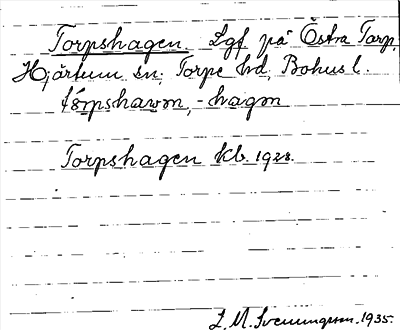 Torpshagen. Lgf på Östra Torp,
Hjärtum sn, Torpe hd, Bohusl.
-hagən
Torpshagen kb. 1928.
L. M. Svenungsson. 1935.